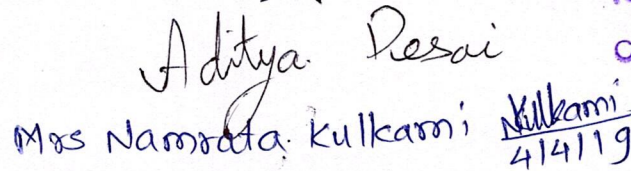 Aditya. Desai
Mrs Namrata. Kulkarni NKulkarni
4/4/19